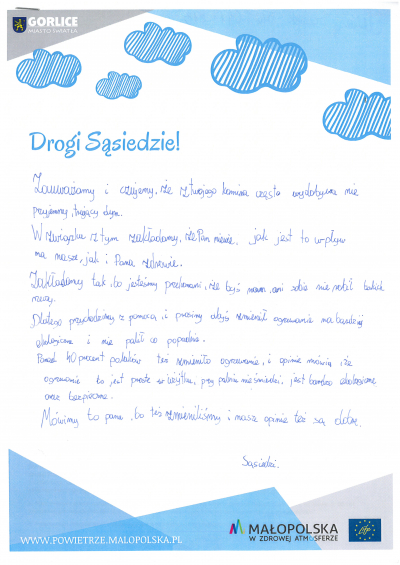 GORLICE
MIASTO ŚWIATŁA
Drogi Sąsiedzie!
Zauważamy i czujemy, że z twojego komina często wydobywa nie
przyjemny, trujący dym.
W związku z tym zakładamy, że Pan niewie, jak jest to wpływ
na nasze, jak i Pana zdrowie.
Zakładamy tak, bo jesteśmy przekonani, że byś nam, ani sobie nie robił takich
rzeczy.
Dlatego przychodzimy z pomocą, i prosimy abyś zmienił ogrzewanie na bardziej
ekologiczne i nie palił co popadnie.
Ponad 40 procent polaków też zmieniło ogrzewanie, i opinie mówią, że
ogrzewanie to jest proste w użytku, przy paleniu nie śmierdzi, jest bardzo ekologiczne
oraz bezpieczne.
Mówimy to panu, bo też zmieniliśmy i nasze opinie też są dobre.
Sąsiedzi.
WWW.POWIETRZE.MALOPOLSKA.PL
MAŁOPOLSKA
W ZDROWEJ ATMOSFERZE
life